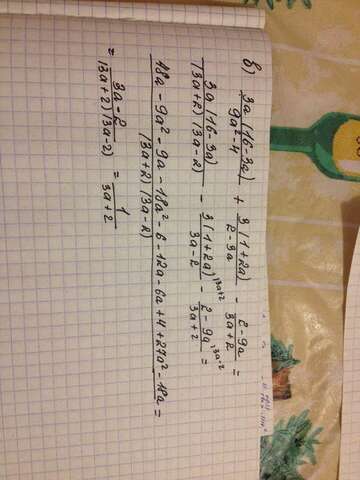 в) 3a(16-3a)/9a²-4 + 3(1+2a)/2-3a - 2-9a/3a+2 =
3a(16-3a)/(3a+2)(3a-2) - 3(1+2a)^(3a+2/3a-2 - 2-9a^(3a-2/3a+2 =
48a-9a²-9a-18a²-6-12a-6a+4+27a²-18a/(3a+2)(3a-2) =
= 3a-2/(3a+2)(3a-2) = 1/3a+2